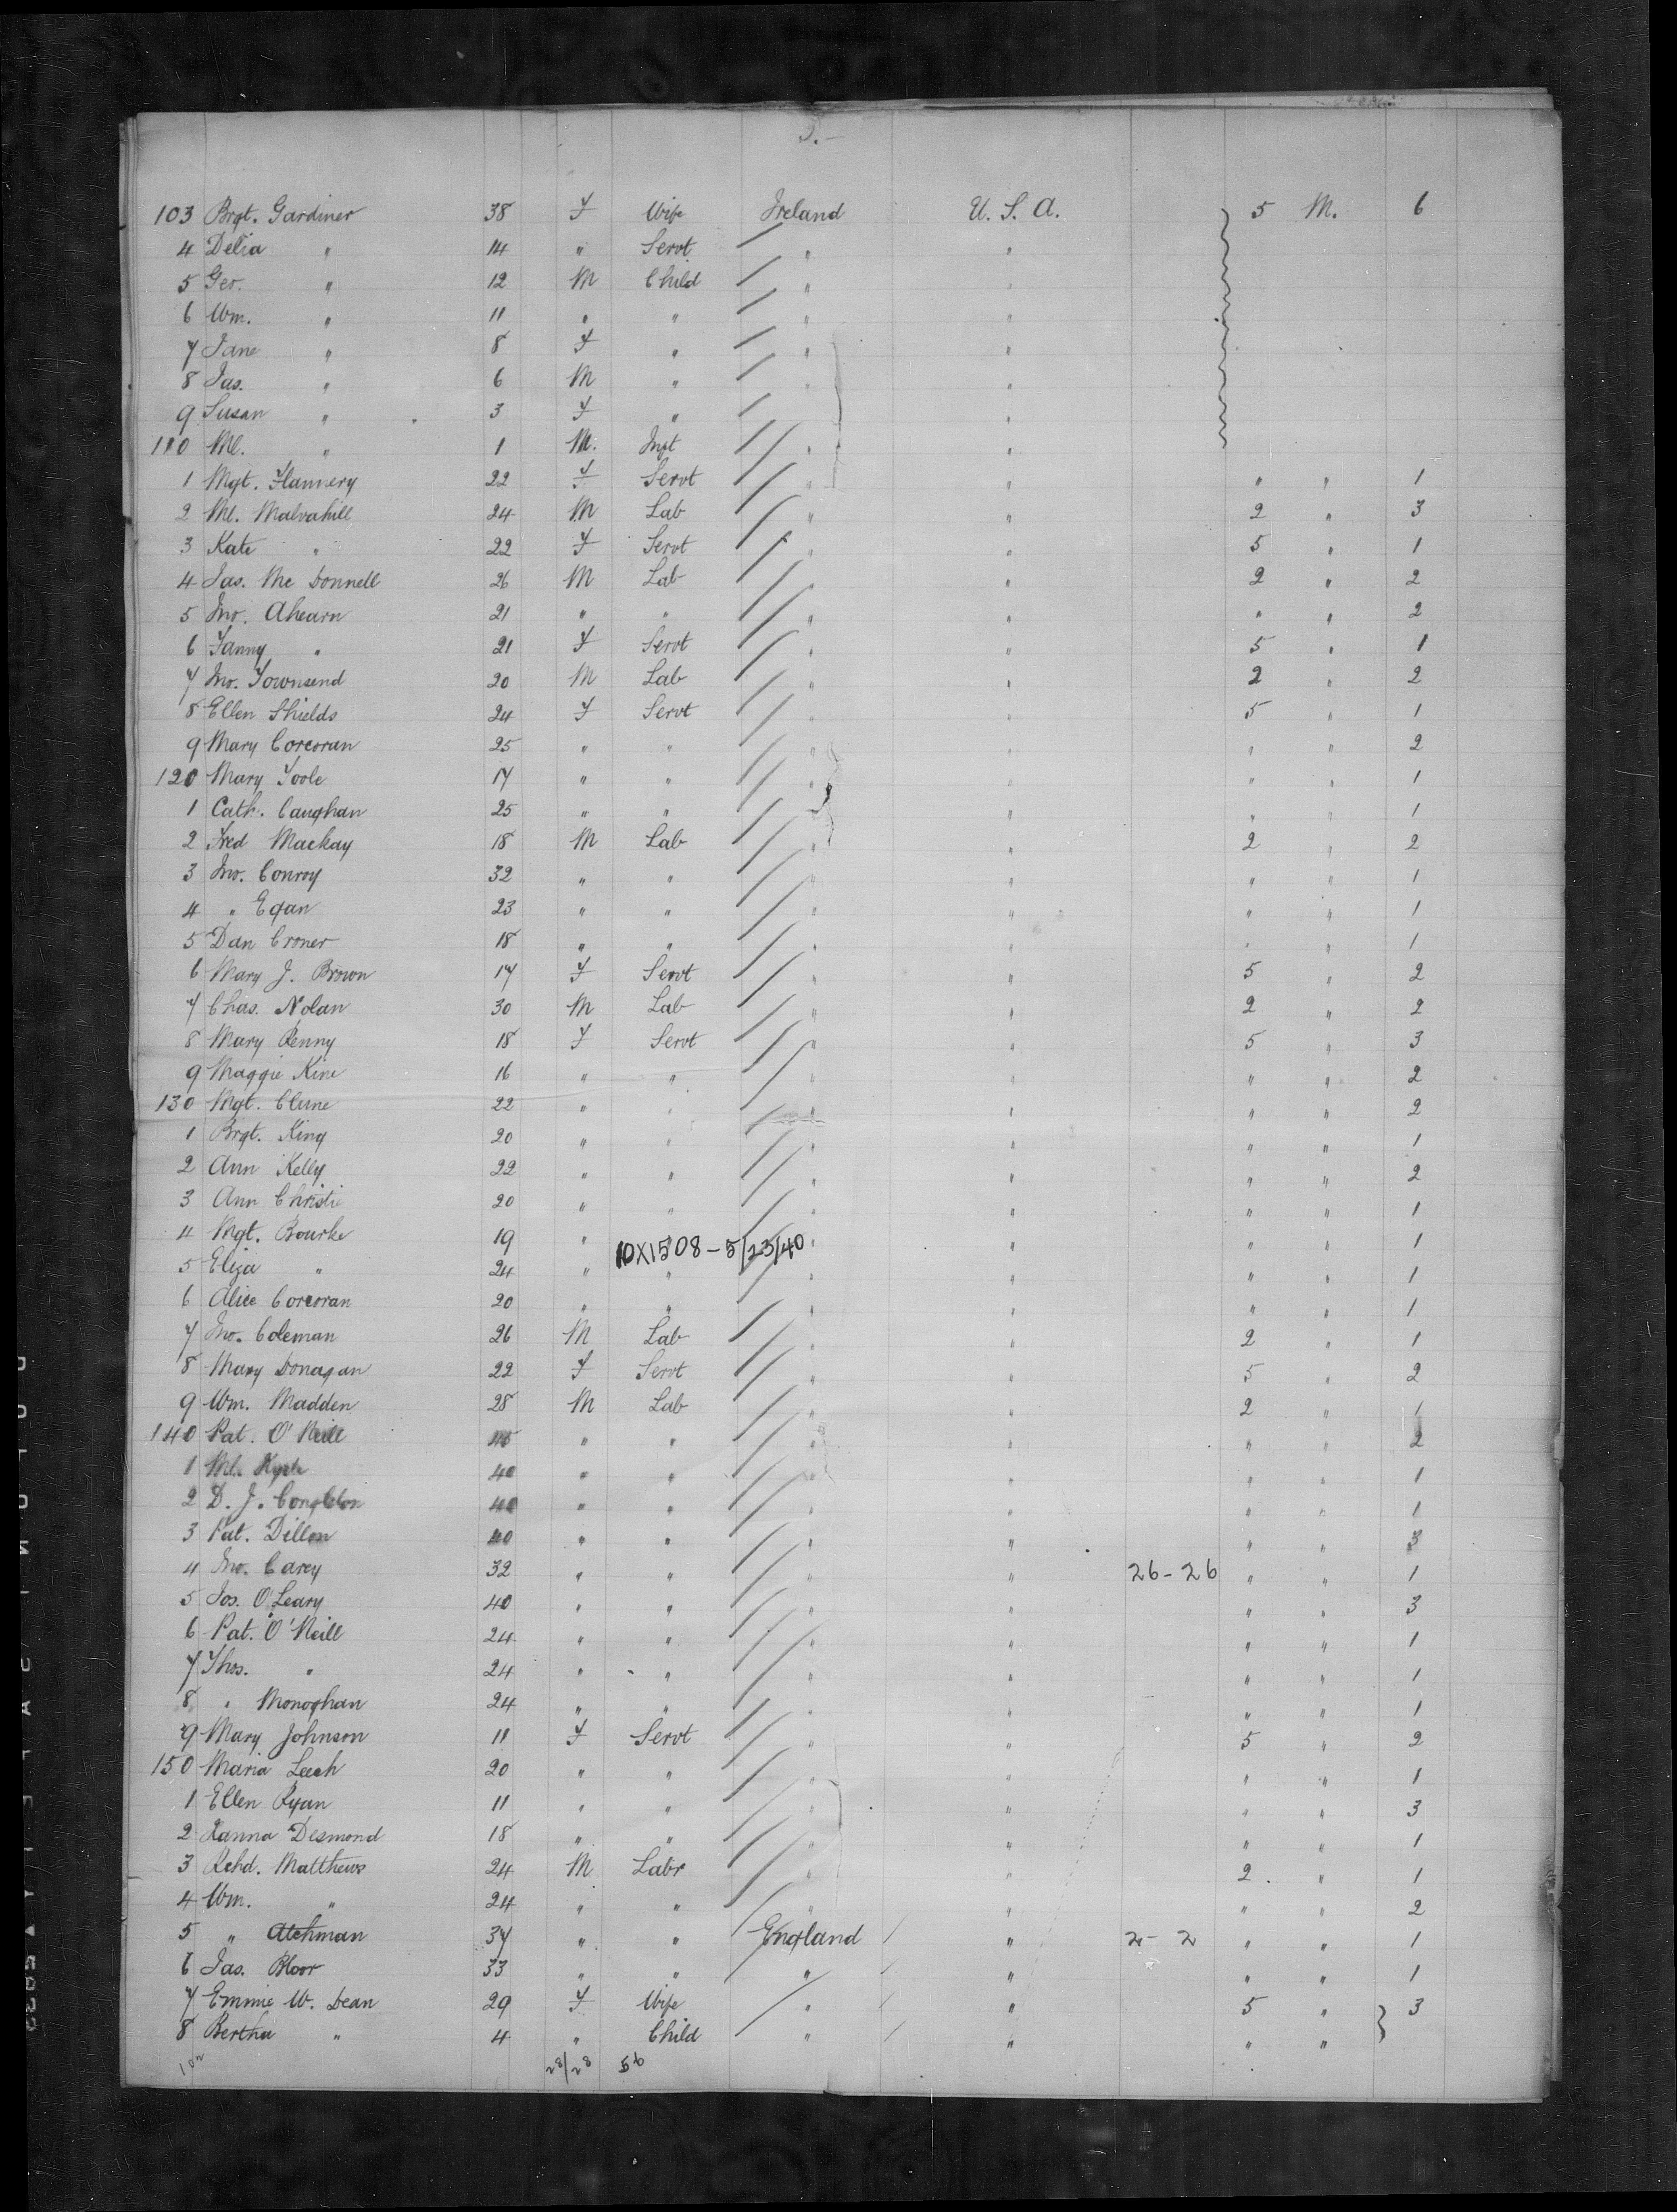 103 Brgt. Gardiner 38 F Wife Ireland U. S. A. 5 M. 6
4 Delia " 14 " Servt " "
5 Geo. " 12 M Child " "
6 Wm. " 11 " " " "
7 Jane " 8 F " " "
8 Jas. " 6 M " " "
9 Susan " 3 F " "
110 Ml. " 1 M. Inft " "
1 Mgt. Flannery 22 F Servt " " " " 1
2 Ml. Malvahill 24 M Lab " " 2 " 3
3 Kate " 22 F Servt " " 5 " 1
4 Jas. Mc Donnell 26 M Lab " " 2 " 2
5 Jno. Ahearn 21 " " " " " " 2
6 Fanny " 21 F Servt " " 5 " 1
7 Jno. Townsend 20 M Lab " " 2 " 2
8 Ellen Shields 24 F Servt " " 5 " 1
9 Mary Corcoran 25 " " " " " " 2
120 Mary Toole 17 " " " " " " 1
1 Cath. Caughan 25 " " " " " " 1
2 Fred Mackay 18 M Lab " " 2 " 2
3 Jno. Conroy 32 " " " " " " 1
4 " Egan 23 " " " " " " 1
5 Dan Croner 18 " " " " " " 1
6 Mary J. Brown 17 F Servt " " 5 " 2
7 Chas. Nolan 30 M Lab " " 2 " 2
8 Mary Kenny 18 F Servt " " 5 " 3
9 Maggie Kine 16 " " " " " " 2
130 Mgt. Clune 22 " " " " " " 2
1 Brgt. King 20 " " " " " " 1
2 Ann Kelly 22 " " " " " " 2
3 Ann Christie 20 " " " " " " 1
4 Mgt. Bourke 19 " " " " " 1
10X1508-5/23/40
5 Eliza " 24 " " " " " " 1
6 Alice Corcoran 20 " " " " " " 1
7 Jno. Coleman 26 M Lab " " 2 " 1
8 Mary Donagan 22 F Servt " " 5 " 2
9 Wm. Madden 28 M Lab " " 2 " 1
140 Pat. O'Neill " " " " " " 2
1 Ml. 40 " " " " " " 1
2 D. J. Congleton 40 " " " " " " 1
3 Pat. Dillon 40 " " " " " " 3
4 Jno. Carey 32 " " " " 26-26 " " 1
5 Jos. O'Leary 40 " " " " " " 3
6 Pat. O'Neill 24 " " " " " " 1
7 Thos. " 24 " " " " " " 1
8 " Monoghan 24 " " " " " " 1
9 Mary Johnson 11 F Servt " " 5 " 2
150 Maria Leech 20 " " " " " " 1
1 Ellen Ryan 11 " " " " " " 3
2 Hanna Desmond 18 " " " " " " 1
3 Rchd. Matthews 24 M Labr " " 2 " 1
4 Wm. " 24 " " " " " " 2
5 " Atchman 37 " " England " 2- 2 " " 1
6 Jas. Bloor 33 " " " " " " 1
7 Emmie W. Dean 29 F Wife " " 5 " 3
8 Bertha " 4 " Child " " " "
102 28/28 56